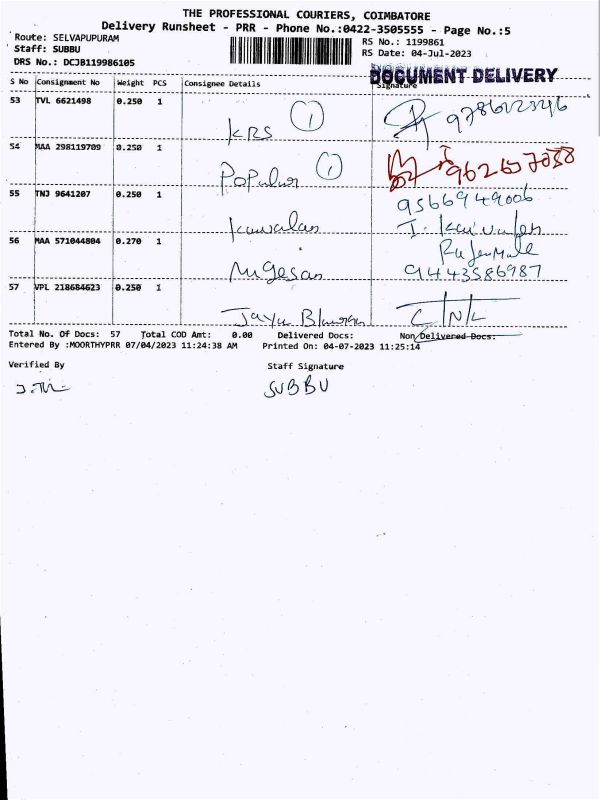 THE PROFESSIONAL COURIERS, COIMBATORE
Delivery Runsheet - PRR - Phone No.:0422-3505555 - Page No.:5
Route: SELVAPUPURAM
RS No.: 1199861
Staff: SUBBU
RS Date: 04-Jul-2023
DRS No.: DCJB119986105
DOCUMENT DELIVERY
S No Consignment No Weight PCS Consignee Details Signature
53 TVL 6621498 0.250 1
KRS 1 9786612346
54 MAA 298119709 0.250 1
Popular 1
55 TNJ 9641207 0.250 1 9566949006
Kawalan
56 MAA 571044804 0.270 1
Mugesan 9443586987
57 VPL 218684623 0.250 1
Jaya
Total No. Of Docs: 57 Total COD Amt: 0.00 Delivered Docs: Non Delivered Docs:
Entered By :MOORTHYPRR 07/04/2023 11:24:38 AM Printed On: 04-07-2023 11:25:14
Verified By Staff Signature
SUBBU